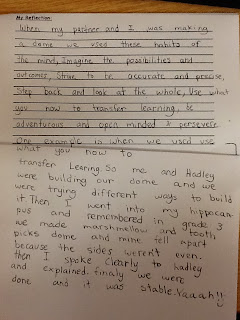 My Reflection:
When my partner and I was making
a dome we used these habits of
the mind, Imagine the possibilities and
outcomes, Strive to be accurate and precise,
Step back and look at the whole, Use what
you now to transfer learning, be
adventurous and open minded & persevere.
One example is when we used use
what you now to
transfer Learing. So me and Hadley
were building our dome and we
were trying different ways to build
it. Then I went into my hippocam
pus and remembered in grade 3
we made marshmellow and tooth
picks dome and mine fell apart
because the sides weren't even.
then I spoke clearly to Hadley
and explained. finaly we were
done and it was stable. Yaaah!!